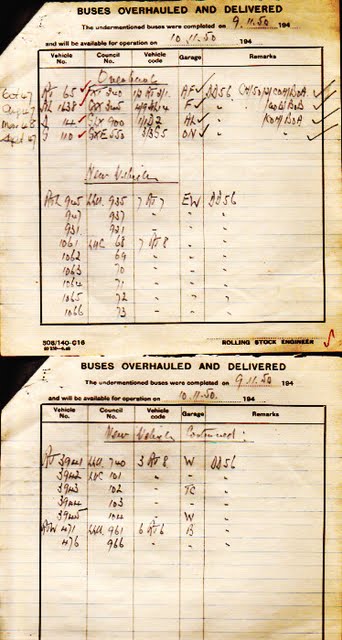 BUSES OVERHAULED AND DELIVERED
The undermentioned buses were completed on 9.11.50 194
and will be available for operation on 10.11.50 194
Vehicle No. Council No. Vehicle code Garage Remarks
Overhauls
Oct 47 RT 65 340 AF DD56
Aug 47 1638 F " "
Mar 48 900 "
Sept 47 110 GXE 550 ON " "
New Vehicles
945 LLU 935 7 RT 7 EW DD56
947 937 " " "
931 921 " " "
1061 LUC 68 7 RT 8 " "
1062 69 " " "
1063 70 " " "
1064 71 " " "
1065 72 " " "
1066 73 " " "
508/140-C16 ROLLING STOCK ENGINEER
BUSES OVERHAULED AND DELIVERED
The undermentioned buses were completed on 9.11.50 194
and will be available for operation on 10.11.50 194
Vehicle No. Council No. Vehicle code Garage Remarks
New Vehicles Continued:
RT 3941 LLU 740 3 RT 8 W DD56
3942 LUC 101 " " "
3943 102 " TC "
3944 103 " " "
3945 104 " W "
RTW 471 LLU 961 6 RT 6 B "
476 966 " " "